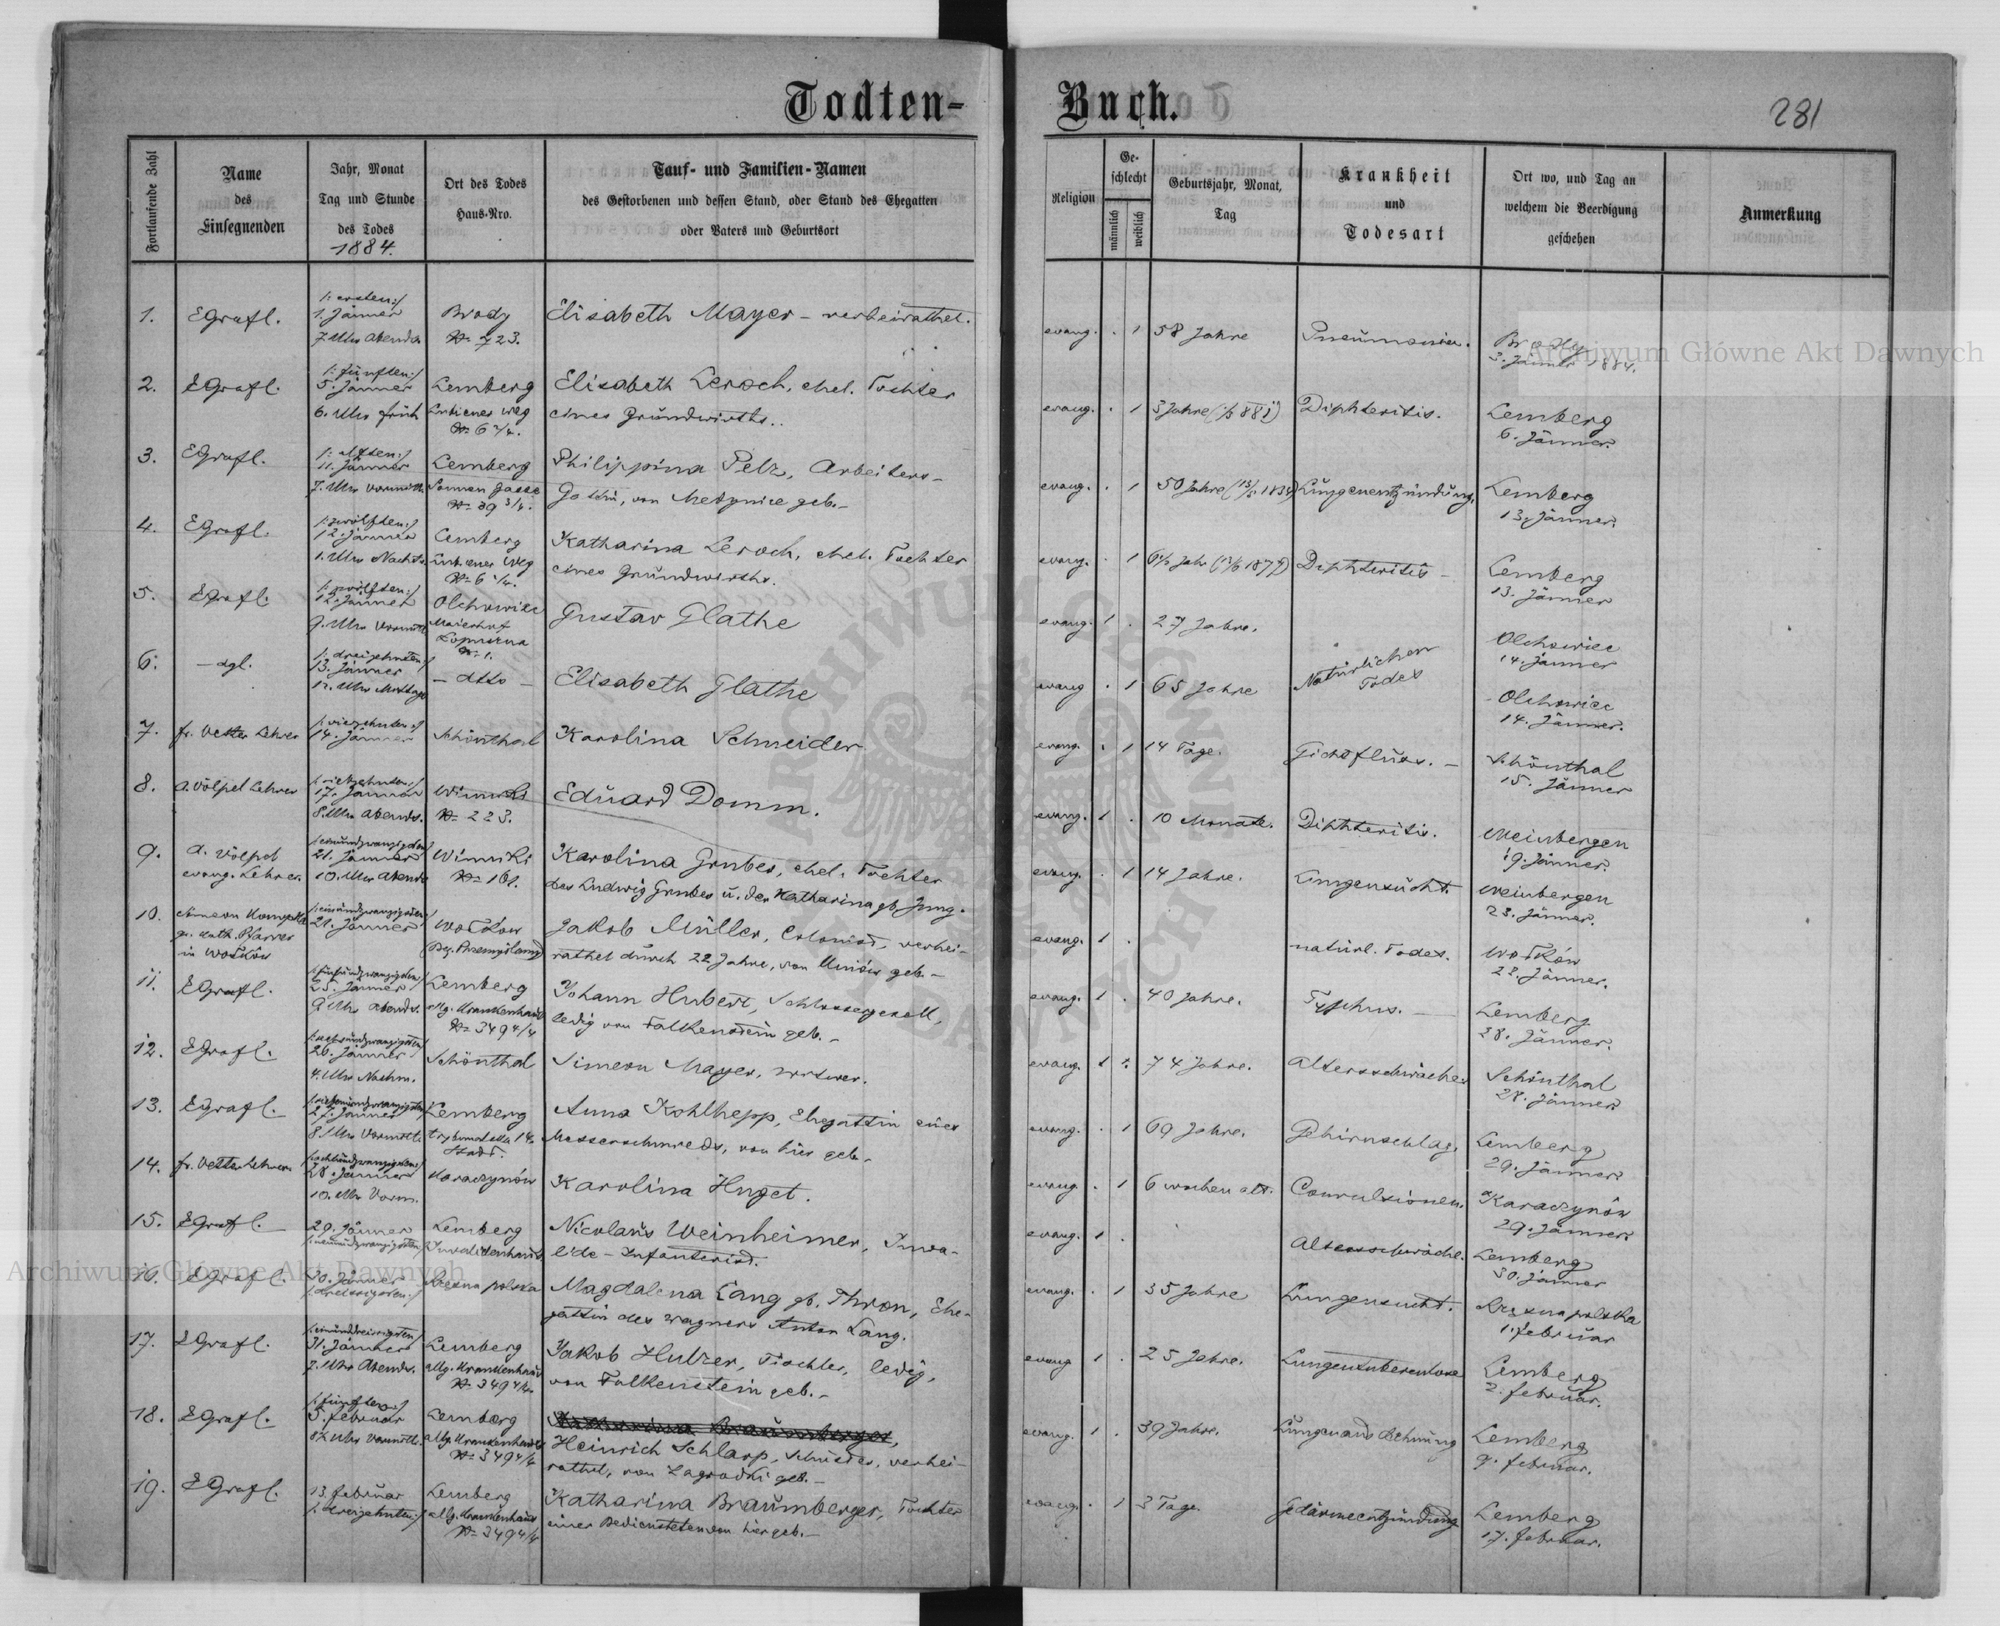 Todten-
Buch.
281
Fortlaufende Zahl
Name
des
Einsegnenden
Jahr, Monat
Tag und Stunde
des Todes
1884.
Ort des Todes
Haus-Nro.
Tauf- und Familien-Namen
des Gestorbenen und dessen Stand, oder Stand des Ehegatten
oder Vaters und Geburtsort
Religion
Ge-
schlecht
männlich
weiblich
Geburtsjahr, Monat,
Tag
Krankheit
und
Todesart
Ort wo, und Tag an
welchem die Beerdigung
geschehen
Anmerkung
1. EGrafl. /: ersten :/
1. Jänner
7. Uhr Abends
Brody
No 723.
Elisabeth Mayer - verheirathet.
evang. . 1 58 Jahre Pneumonie. Brody
3. Jänner 1884.
2. EGrafl. /: fünften :/
5. Jänner
6. Uhr früh
Lemberg
No 6 2/4.
Elisabeth Leroch, ehel. Tochter
eines Grundwirths.
evang. . 1 3 Jahre Diphteritis. Lemberg
6. Jänner.
3. EGrafl. /: elften :/
11. Jänner
7. Uhr Vormitt.
Lemberg
Sonnen Gasse
No 39 3/4.
Philippina Pelz, Arbeiters-
Gattin, von geb.-
evang. . 1 50 Jahre Lungenentzündung. Lemberg
13. Jänner.
4. EGrafl. /: zwölften :/
12. Jänner
1. Uhr Nachts.
Lemberg
Katharina Leroch, ehel. Tochter
eines Grundwirths.
evang. . 1 Diphteritis - Lemberg
13. Jänner
5. EGrafl. /: zwölften :/
12. Jänner
9. Uhr Vormitt.
Olchowiec
Maierhof
Lopuszna
No 1.
Gustav Glathe
evang. 1 . 27 Jahre. Olchowiec
14. Jänner
6. - dgl. /: dreizehnten :/
13. Jänner
12. Uhr Mittags
- dtto -
Elisabeth Glathe
evang . 1 65 Jahre Natürlichen
Todes
Olchowiec
14. Jänner.
7. fr. Vetter Lehrer /: vierzehnten :/
14. Jänner
Schönthal Karolina Schneider
evang. . 1 14 Tage. Gichtfluss. - Schönthal
15. Jänner
8. A. Völpel Lehrer /: siebzehnten :/
17. Jänner
8. Uhr Abends.
Winniki
No 223.
Eduard Domm.
evang. 1 . 10 Monate. Diphteritis. Weinbergen
19. Jänner.
9. A. Völpel
evang. Lehrer.
/: einundzwanzigsten :/
21. Jänner
10. Uhr Abends
Winniki
No 161.
Karolina Gruber, ehel. Tochter
des Ludwig Gruber u. der Katharina gb. Jung.
evang. . 1 14 Jahre. Lungensucht. Weinbergen
23. Jänner.
10. gr. kath. Pfarrer
in Wołków
/: einundzwanzigsten :/
21. Jänner
Wołków
Bez. Przemyślany
Jakob Müller, Colonist, verhei-
rathet durch 22 Jahre, von Unisów geb.-
evang. 1 . natürl. Todes. Wołków
22. Jänner.
11. EGrafl. /: fünfundzwanzigsten :/
25. Jänner
9. Uhr Abends.
Lemberg
allg. Krankenhaus
No 349 4/4
Johann Hubert, Schlossergesell,
ledig von Falkenstein geb.-
evang. 1 . 40 Jahre. Typhus. - Lemberg
28. Jänner.
12. EGrafl. /: sechsundzwanzigsten :/
26. Jänner
4. Uhr Nachm.
Schönthal Simeon Mayer, Witwer.
evang. 1 . 74 Jahre. Altersschwäche Schönthal
28. Jänner.
13. EGrafl. /: siebenundzwanzigsten :/
27. Jänner
8. Uhr Vormitt.
Lemberg
Stadt.
Anna Kohlhepp, Ehegattin eines
Messerschmieds, von hier geb.-
evang. . 1 69 Jahre. Gehirnschlag. Lemberg
29. Jänner.
14. fr. Vetter Lehrer /: achtundzwanzigsten :/
28. Jänner
10. Uhr Vorm.
Karaczynów Karolina Huget.
evang. . 1 6 Wochen alt. Convulsionen. Karaczynów
29. Jänner
15. EGrafl. 29. Jänner
/: neunundzwanzigsten
Lemberg
Invalidenhaus.
Nicolaus Weinheimer, Inva-
lide - Infanterist.
evang. 1 . Altersschwäche. Lemberg
30. Jänner
16. EGrafl. 30. Jänner
/: dreissigsten :/
Rzesna polska
Magdalena Lang gb. Thron, Ehe-
gattin des Wagners Anton Lang.
evang. . 1 35 Jahre Lungensucht. Rzesna polska
1. Februar
17. EGrafl. /: einunddreissigsten
31. Jänner
7. Uhr Abends.
Lemberg
allg. Krankenhaus
No 349 4/4.
Jakob Hulzer, Tischler, ledig,
von Falkenstein geb.-
evang 1 . 25 Jahre. Lungentuberculose Lemberg
2. Februar.
18. EGrafl. /: fünften :/
5. Februar
8½ Uhr Vormitt.
Lemberg
allg. Krankenhaus
No 349 4/4
Katharina Braumberger,
Heinrich Schlapp, Schuster, verhei-
rathet, von Zagrodki geb.-
evang. 1 . 39 Jahre. Lungenausdehnung Lemberg
9. Februar.
19. EGrafl. 13 Februar
/: dreizehnten :/
Lemberg
allg. Krankenhaus
No 349 4/4
Katharina Braumberger, Tochter
einer Bediensteten von hier geb.-
evang. . 1 3 Tage. Gedärmentzündung Lemberg
17. Februar.
Archiwum Główne Akt Dawnych
Archiwum Główne Akt Dawnych